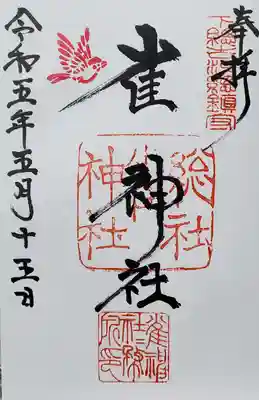 奉拝
雀神社
総社
神社
雀神
社務
所印
令和五年五月十五日